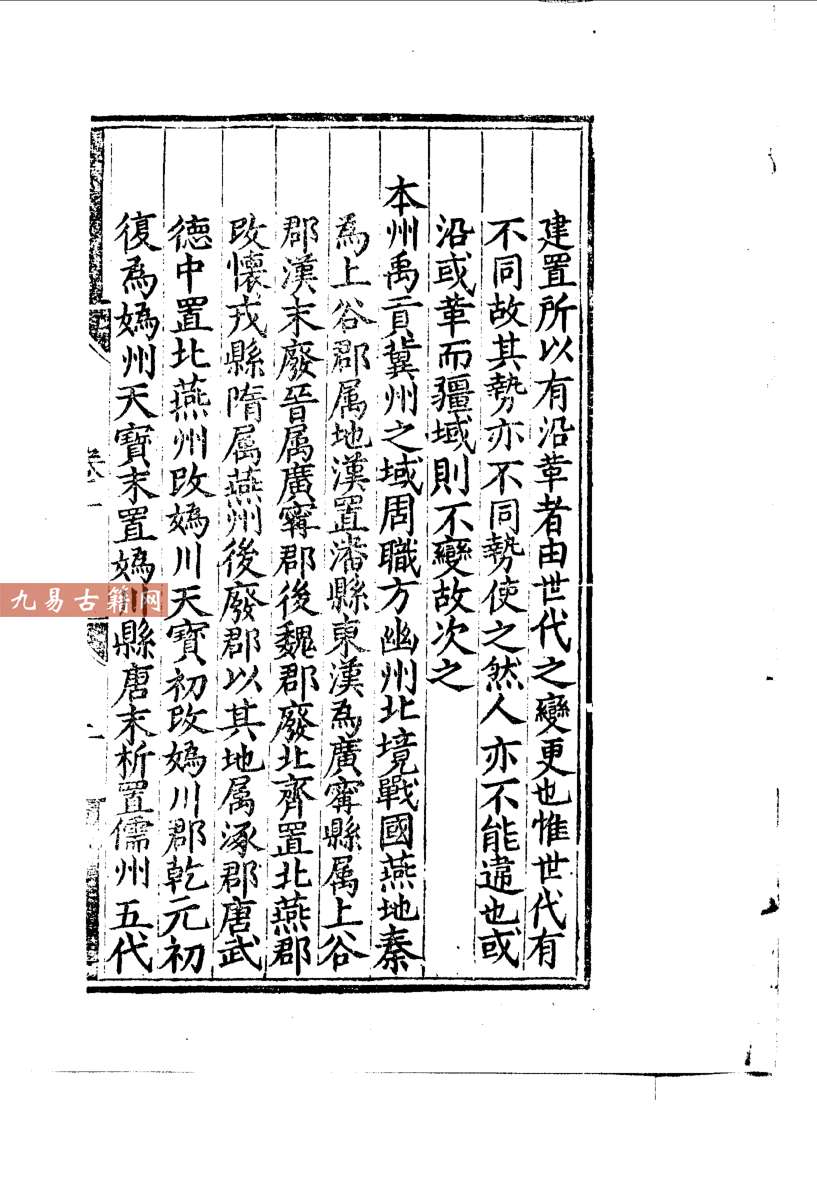 建置所以有沿革者由世代之變更也惟世代有
不同故其勢亦不同勢使之然人亦不能違也或
沿或革而疆域則不變故次之
本州禹貢冀州之域周職方幽州北境戰國燕地秦
爲上谷郡属地漢置潘縣東漢爲廣寗縣属上谷
郡漢末廢晉属廣寗郡後魏郡廢北齊置北燕郡
改懷戎縣隋属燕州後廢郡以其地属涿郡唐武
德中置北燕州改媯川天寳初改媯川郡乾元初
復爲媯州天寳末置媯川縣唐末析置儒州五代
卷一
九易古籍网